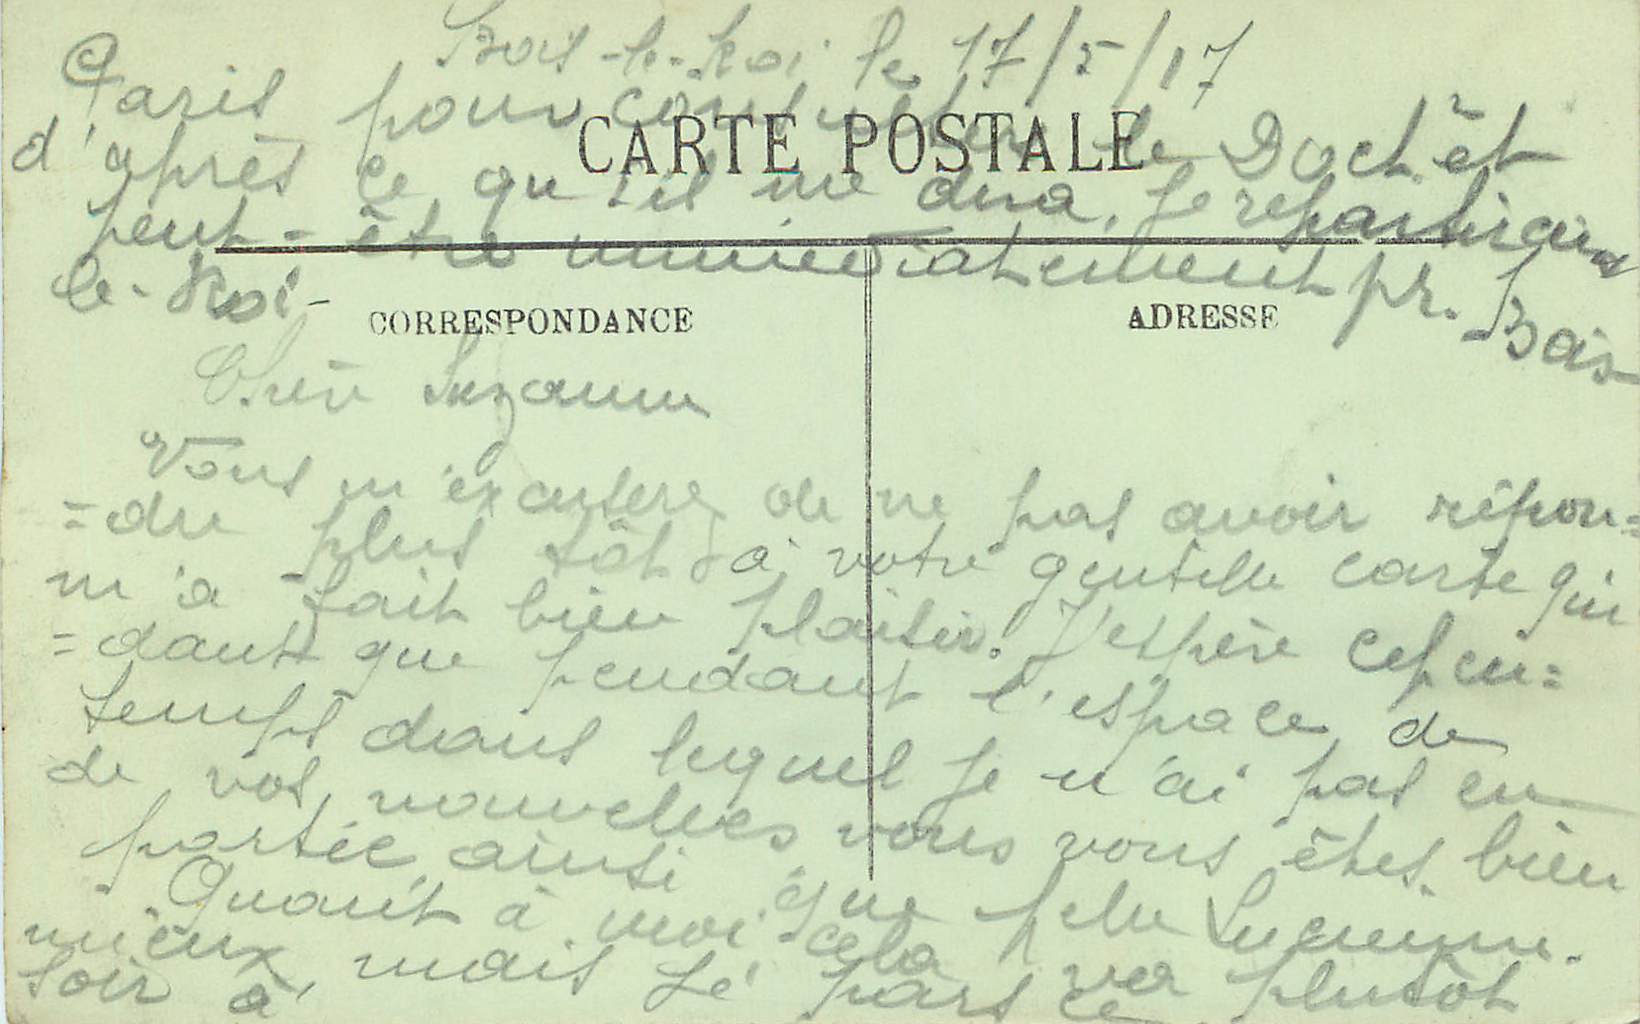 Bois-le-Roi le 17/5/17
Paris pour consulter le Doct et
d'après ce qu'il me dira, je repartirai
peut-être immédiatement pr. Bois-
le-Roi-
CARTE POSTALE
CORRESPONDANCE
ADRESSE
Chère Suzanne
Vous m'excuserez de ne pas avoir répon=
=dre plus tôt à votre gentille carte qui
m'a fait bien plaisir. J'espère cepen=
=dant que pendant l'espace de
temps dans lequel je n'ai pas eu
de vos nouvelles vous vous êtes bien
portée, ainsi que
Quant à moi cela va plutôt
mieux, mais je pars ce
soir à